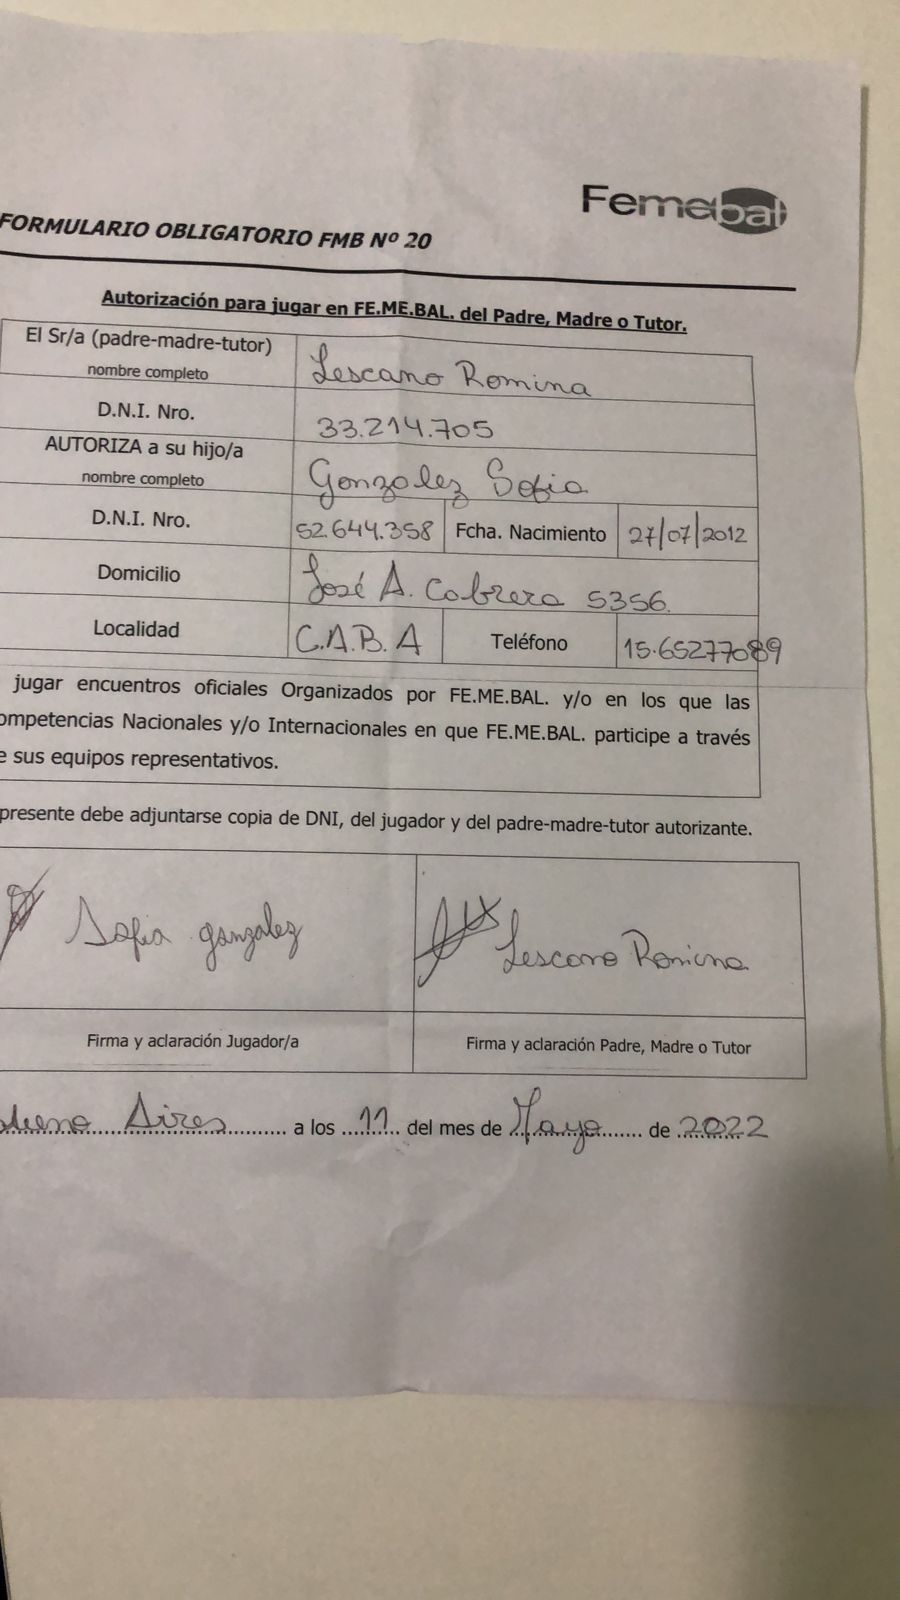 Femebal
FORMULARIO OBLIGATORIO FMB Nº 20
Autorización para jugar en FE.ME.BAL. del Padre, Madre o Tutor.
El Sr/a (padre-madre-tutor)
nombre completo
Lescano Romina
D.N.I. Nro.
33.214.705
AUTORIZA a su hijo/a
nombre completo
Gonzalez Sofia
D.N.I. Nro.
52.644.358
Fcha. Nacimiento
27/07/2012
Domicilio
José A. Cabrera 5356.
Localidad
C.A.B.A
Teléfono
15.65277089
jugar encuentros oficiales Organizados por FE.ME.BAL. y/o en los que las
ompetencias Nacionales y/o Internacionales en que FE.ME.BAL. participe a través
e sus equipos representativos.
presente debe adjuntarse copia de DNI, del jugador y del padre-madre-tutor autorizante.
Sofia gonzalez
Lescano Romina
Firma y aclaración Jugador/a
Firma y aclaración Padre, Madre o Tutor
Aires a los 11 del mes de Mayo de 2022